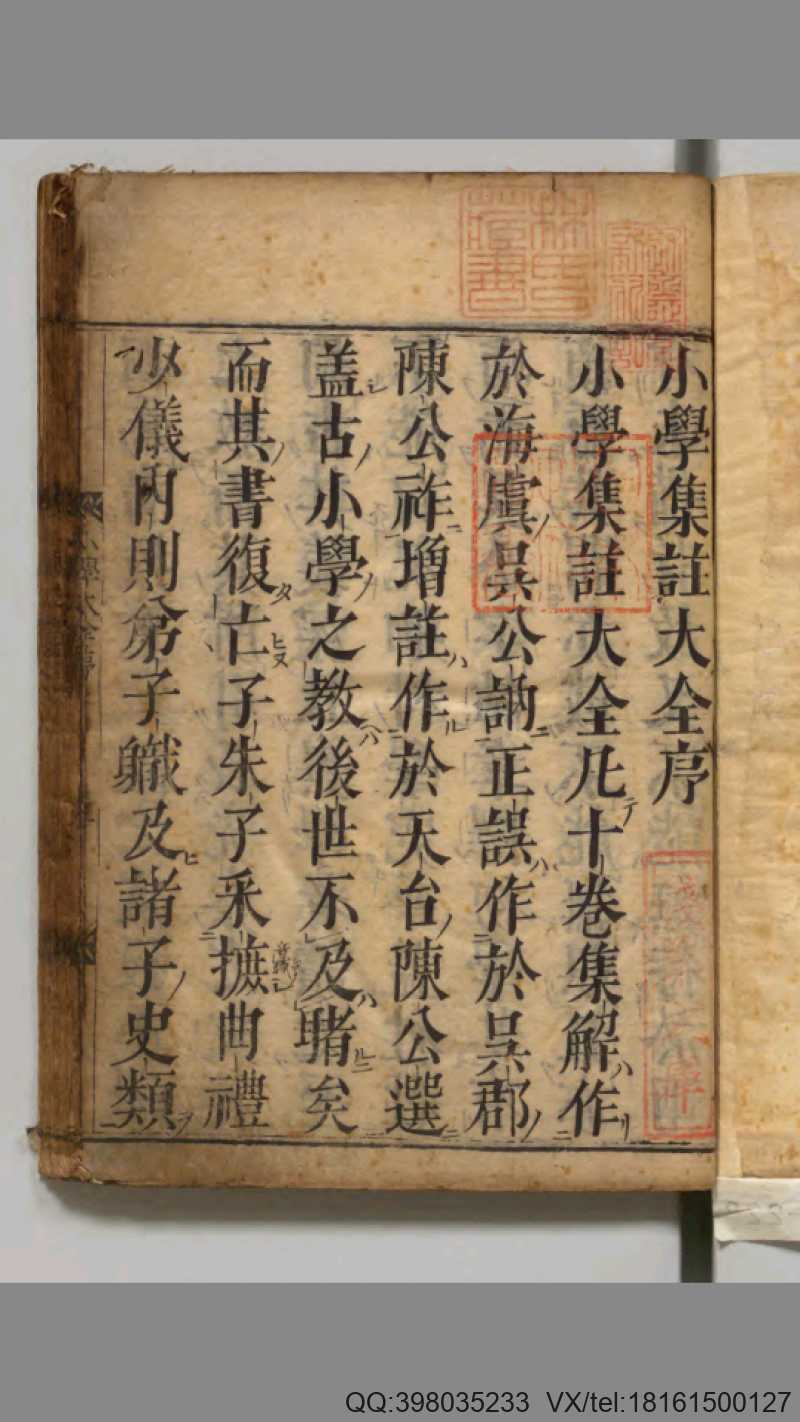 小學集註大全序
小學集註大全凡十卷集解作
於海虞吳公訥正誤作於吳郡
陳公祚增註作於天台陳公選
盖古小學之教後世不及睹矣
而其書復亡子朱子采摭曲禮
少儀內則弟子職及諸子史類
林氏
藏書
QQ:398035233 VX/tel:18161500127